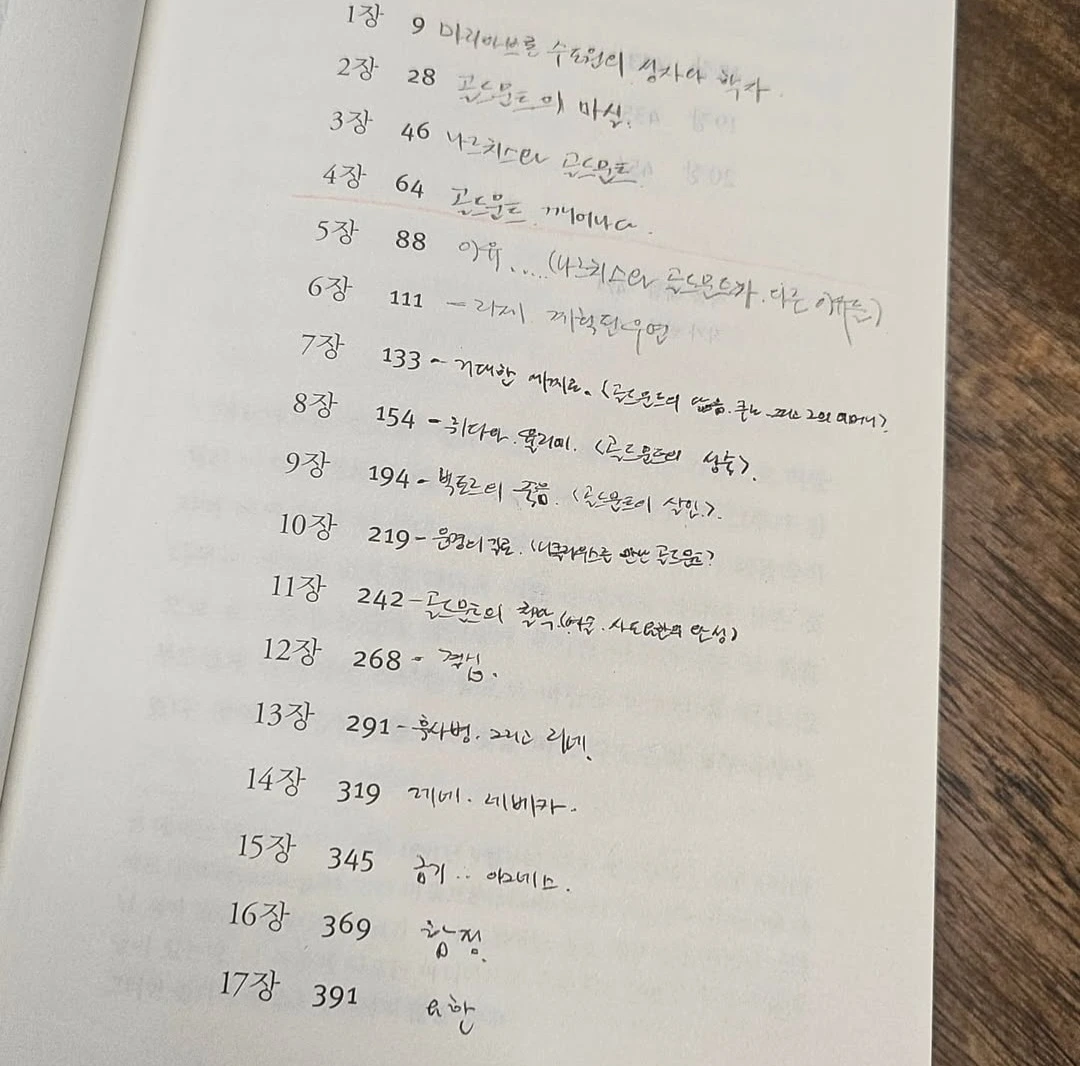 1장 9 마리아브론 수도원의 성자와 학자.
2장 28 골드문트의 마실.
3장 46 나르치스와 골드문트.
4장 64 골드문트. 깨어나다.
5장 88 이유.....(나르치스와 골드문트가. 다른 이유들)
6장 111 - 리제. 계획된 우연
7장 133 - 거대한 〈골드문트의 그리고 그의 어머니〉.
8장 154 - 뤼디아. 율리에. 〈골드문트의 성숙〉.
9장 194 - 빅토르의 죽음. 〈골드문트의 살인.〉.
10장 219 - 운명의 〈니클라우스를 만난 골드문트〉
11장 242 - 골드문트의 (예술. 사도요한의 완성)
12장 268 - 결심.
13장 291 - 흑사병. 그리고 리네.
14장 319 레네. 레베카.
15장 345 금기.. 아그네스.
16장 369 함정.
17장 391 요한